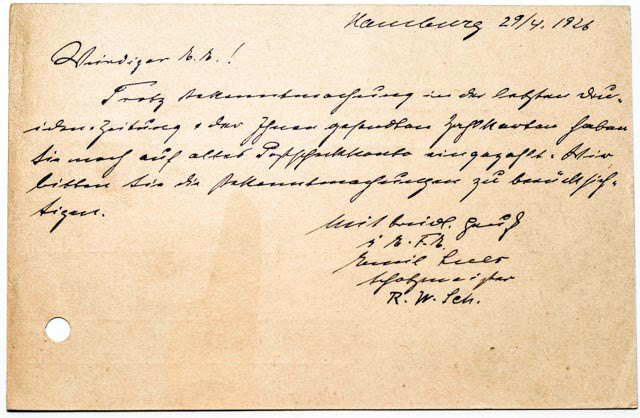 Hamburg 29/4. 1926
Würdiger B. B.!
Trotz Bekanntmachung in der letzten Dru-
iden-Zeitung & der Ihnen gesandten Zahlkarten haben
Sie noch auf altes Postscheckkonto eingezahlt. Wir
bitten Sie die Bekanntmachungen zu berücksich-
tigen.
Mit brüdl. Gruß
i. B. F. B.
Emil
Schatzmeister
R. W. Sch.